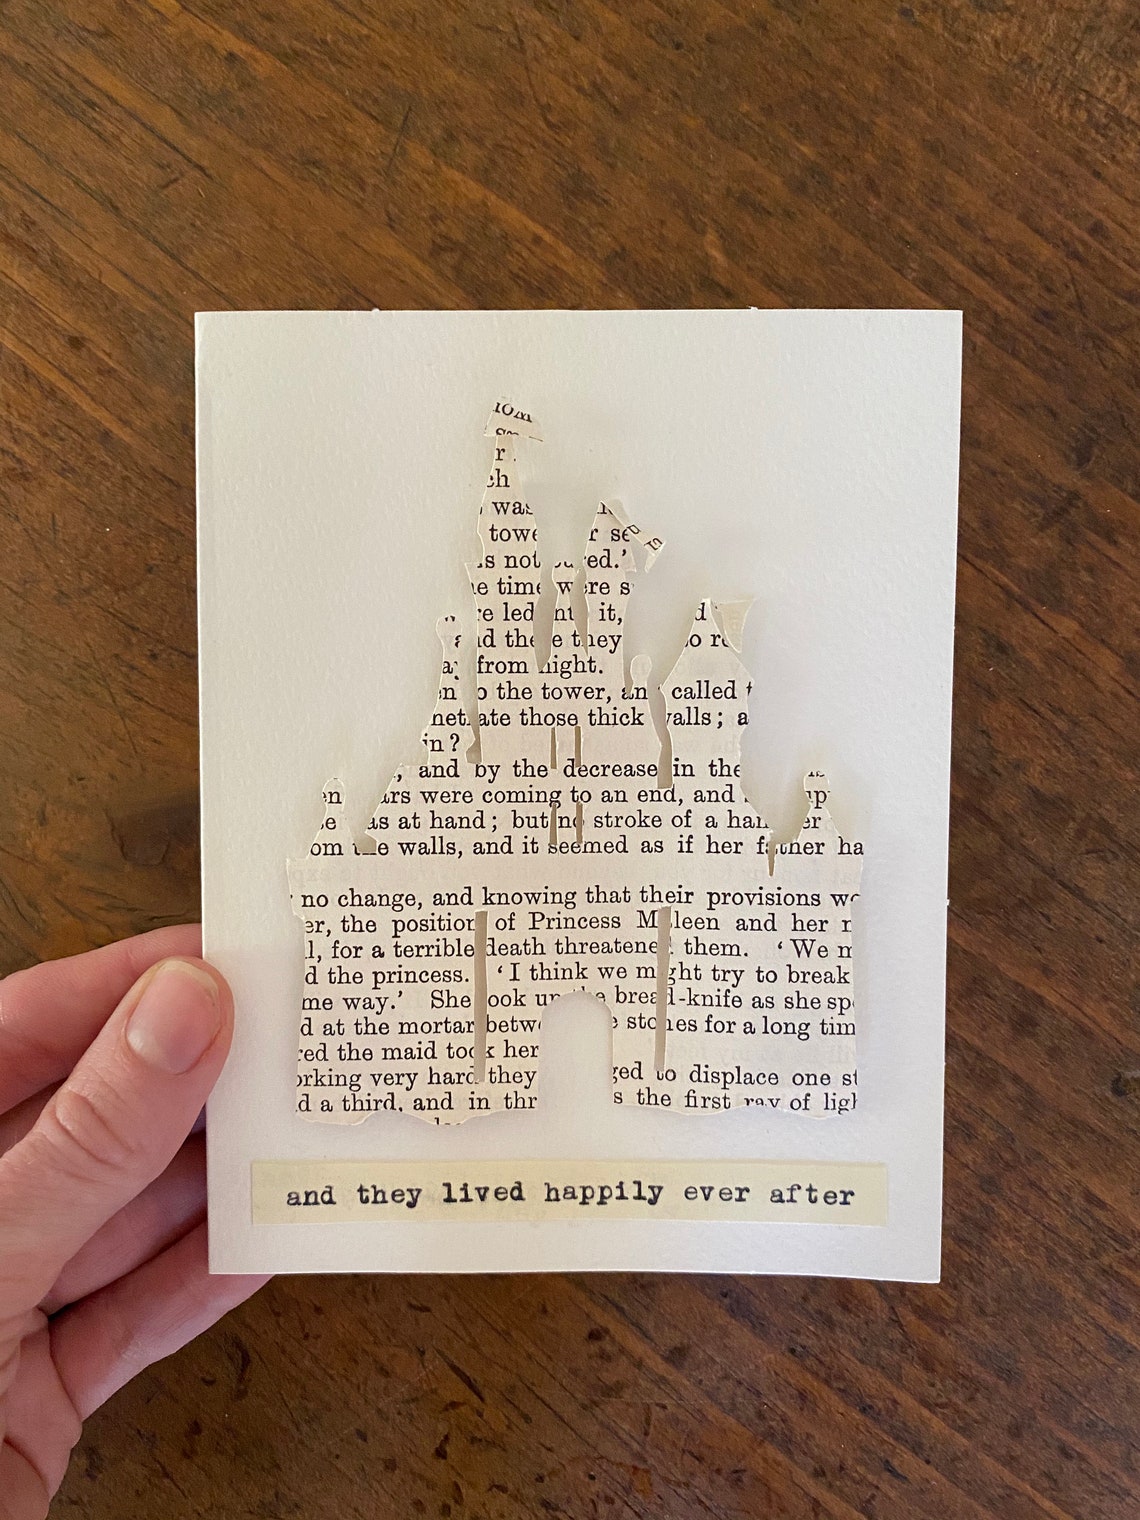 r
ch
was
towe r se
s not red.'
e time were s
re led nto it, d
nd the e they so re
from night.
en o the tower, an called t
net ate those thick walls; a
in?
, and by the decrease in the
en ars were coming to an end, and up
be as at hand; but no stroke of a ham er
om the walls, and it seemed as if her father ha
no change, and knowing that their provisions wo
er, the position of Princess M leen and her m
l, for a terrible death threatened them. 'We m
d the princess. 'I think we might try to break
me way.' She ook up the bread-knife as she sp
d at the mortar betw e stones for a long tim
red the maid took her
orking very hard they ged to displace one st
d a third, and in thr s the first ray of ligh
and they lived happily ever after